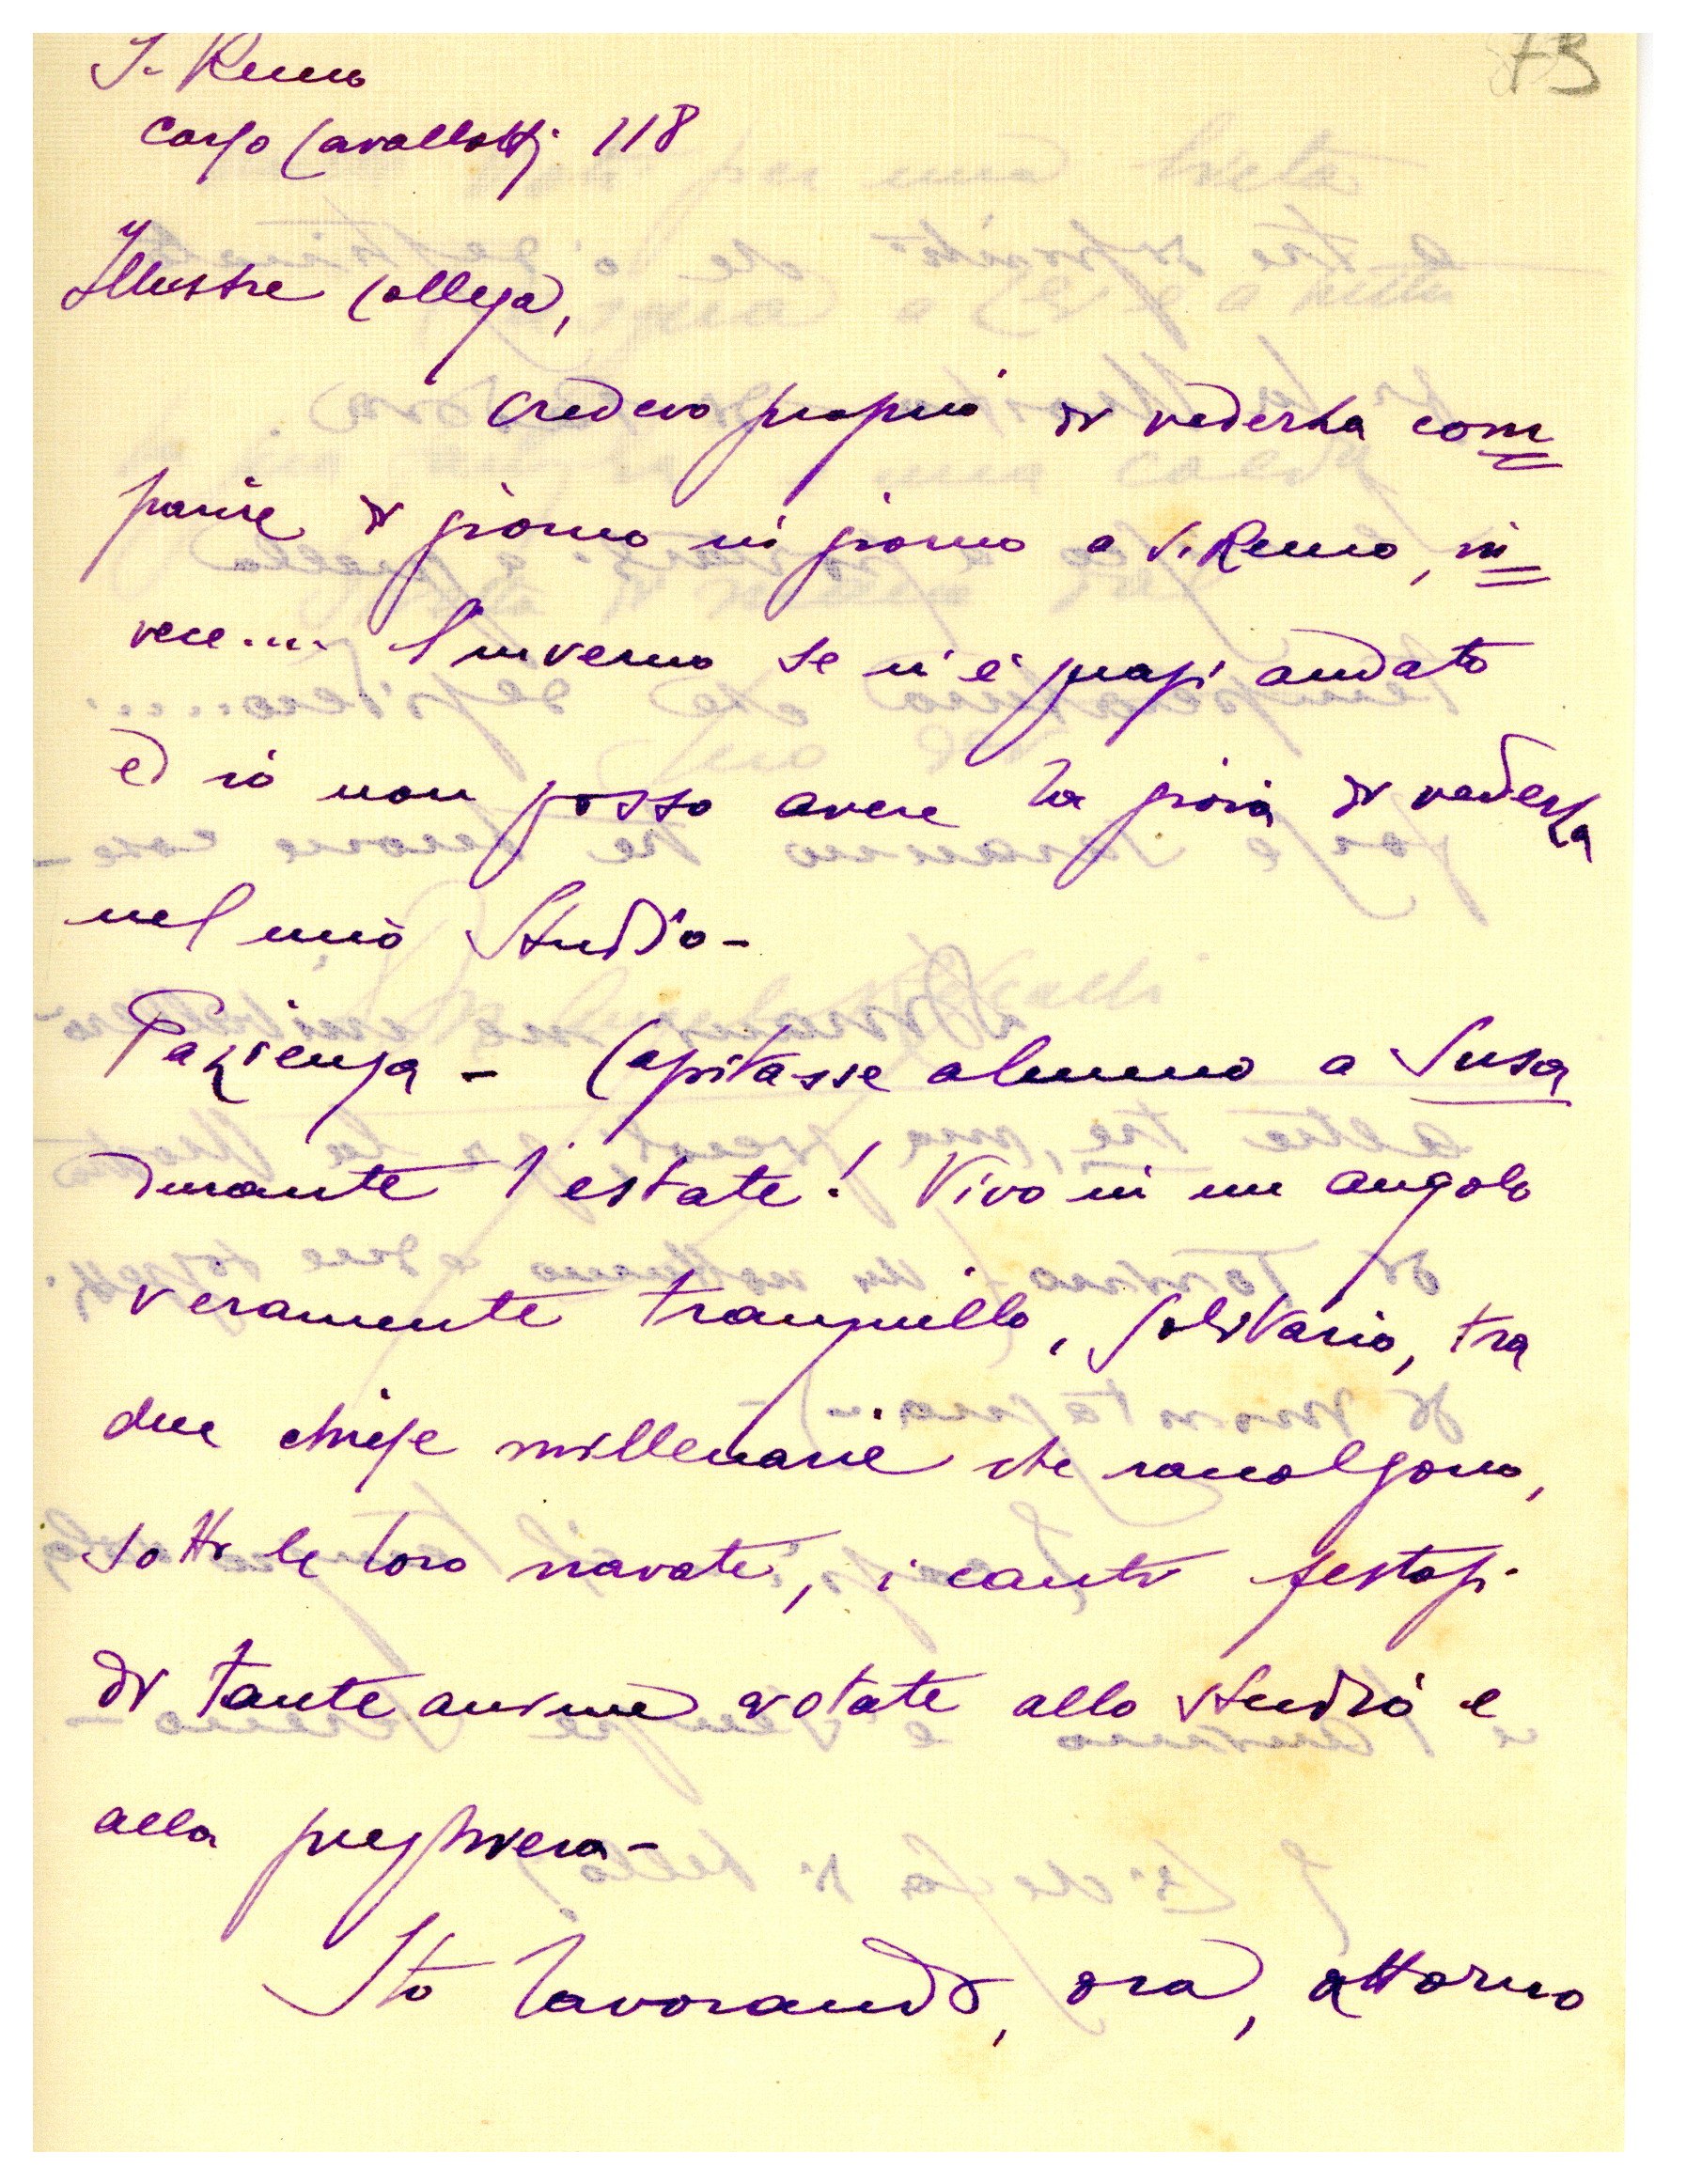 73
S. Remo
Corso Cavallotti 118
Illustre Collega,
credevo proprio di vederLa com
parire di giorno in giorno a S. Remo, in
vece.... l'inverno se n'è quasi andato
ed io non posso avere la gioia di vederLa
nel mio Studio -
Pazienza - Capitasse almeno a Susa
durante l'estate! Vivo in un angolo
veramente tranquillo, solitario, tra
due chiese millenarie che raccolgono,
sotto le loro navate, i canti festosi
di tante anime votate allo studio e
alla preghiera -
Sto lavorando, ora, attorno